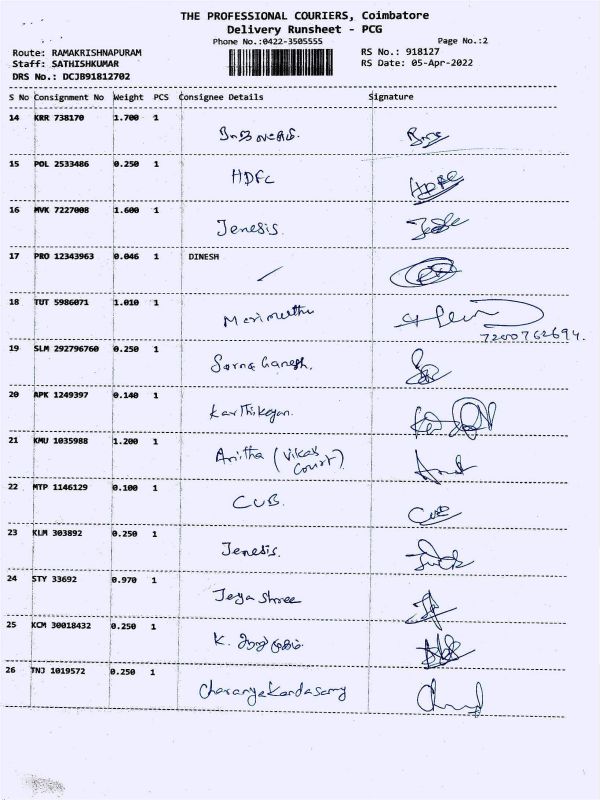 THE PROFESSIONAL COURIERS, Coimbatore
Delivery Runsheet - PCG
Phone No.:0422-3505555 Page No.:2
Route: RAMAKRISHNAPURAM RS No.: 918127
Staff: SATHISHKUMAR RS Date: 05-Apr-2022
DRS No.: DCJB91812702
S No Consignment No Weight PCS Consignee Details Signature
14 KRR 738170 1.700 1
15 POL 2533486 0.250 1 HDFC HDFC
16 MVK 7227008 1.600 1 Jenesis.
17 PRO 12343963 0.046 1 DINESH
18 TUT 5986071 1.010 1 Marimuthu
7200762694.
19 SLM 292796760 0.250 1 Sorna Ganesh.
20 APK 1249397 0.140 1 Karthikeyan.
21 KMU 1035988 1.200 1 Anitha (Vikas Court)
22 MTP 1146129 0.100 1 CUB. CUB
23 KLM 303892 0.250 1 Jenesis.
24 STY 33692 0.970 1 Jeya Shree
25 KCM 30018432 0.250 1 K.
26 TNJ 1019572 0.250 1 Charanya Kandasamy